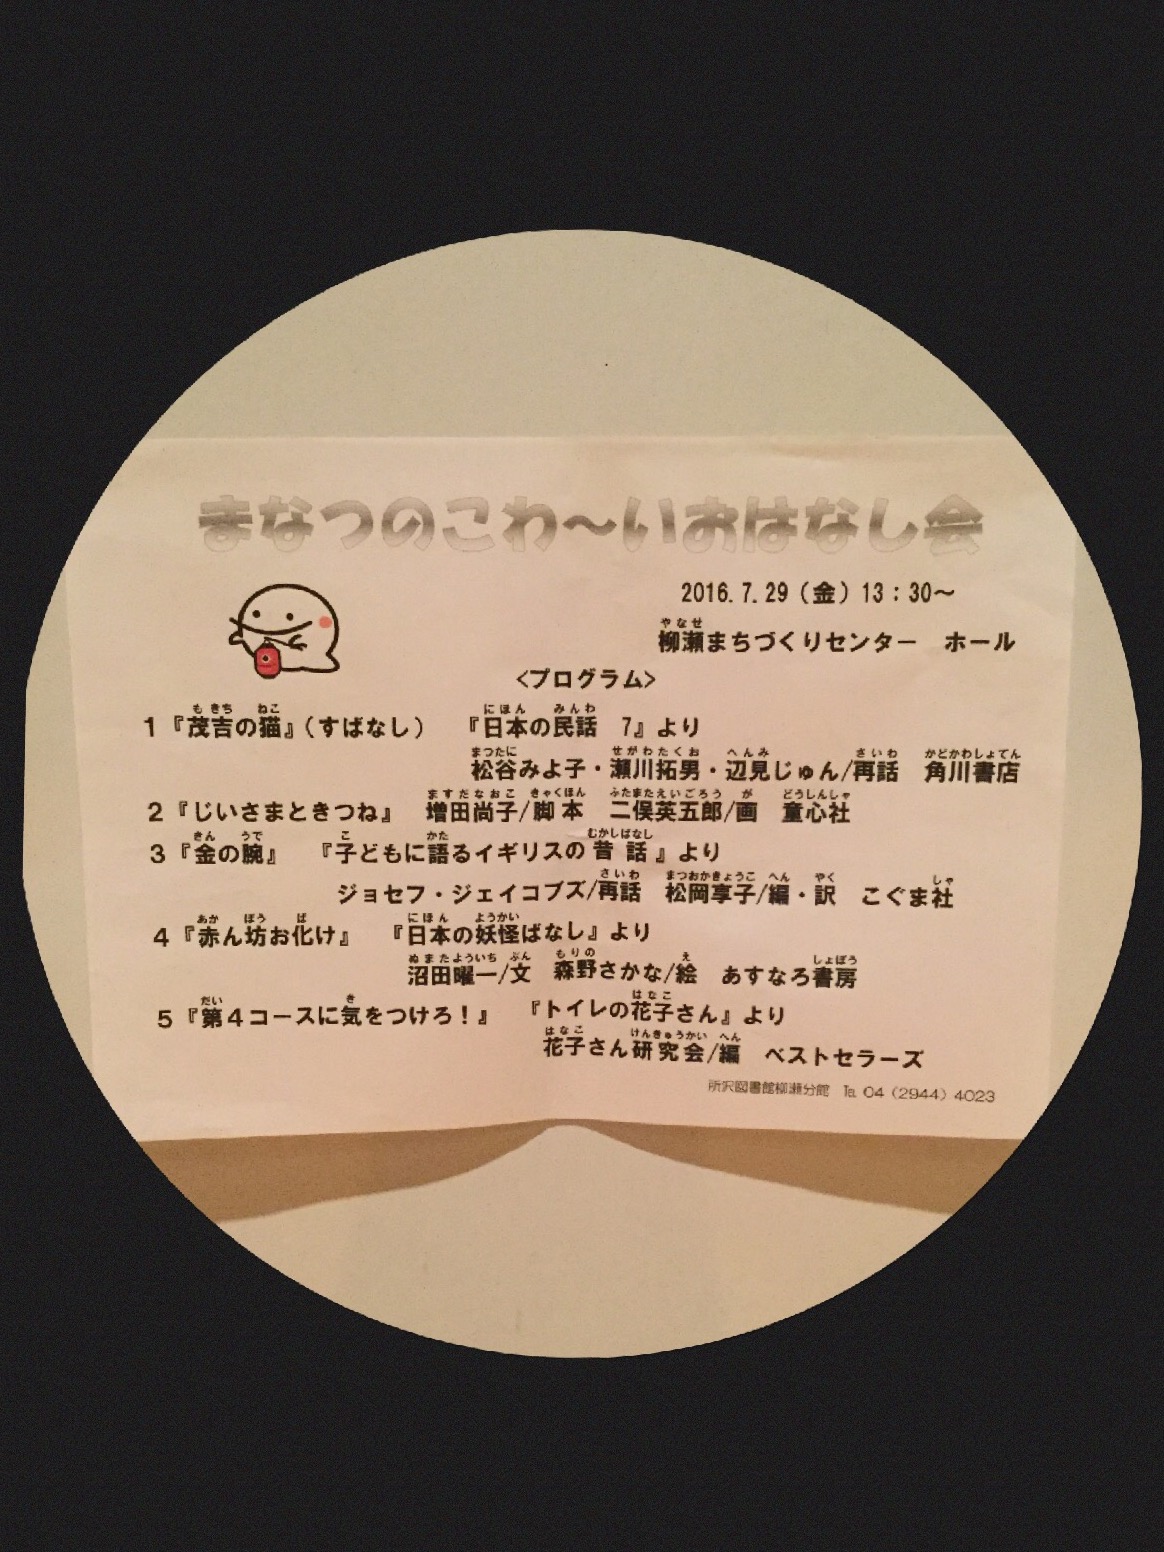 まなつのこわ～いおはなし会
2016.7.29（金）13：30～
柳瀬まちづくりセンター　ホール
<プログラム>
1『茂吉の猫』（すばなし）　『日本の民話　7』より
松谷みよ子・瀬川拓男・辺見じゅん/再話　角川書店
2『じいさまときつね』　増田尚子/脚本　二俣英五郎/画　童心社
3『金の腕』　『子どもに語るイギリスの昔話』より
ジョセフ・ジェイコブズ/再話　松岡享子/編・訳　こぐま社
4『赤ん坊お化け』　『日本の妖怪ばなし』より
沼田曜一/文　森野さかな/絵　あすなろ書房
5『第4コースに気をつけろ！』　『トイレの花子さん』より
花子さん研究会/編　ベストセラーズ
所沢図書館柳瀬分館　℡ 04（2944）4023